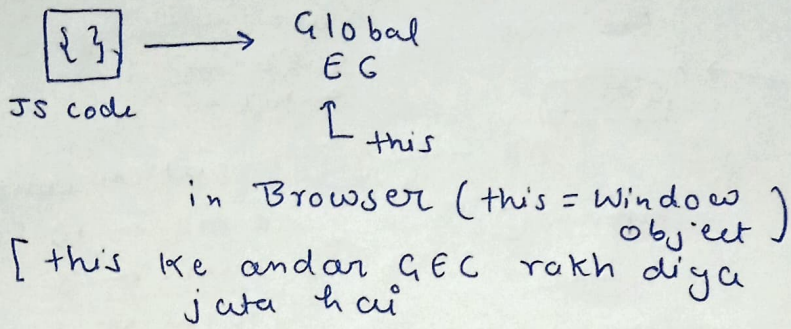 { } → Global
EC
JS code
this
in Browser (this = Window
object)
[ this ke andar GEC rakh diya
jata hai